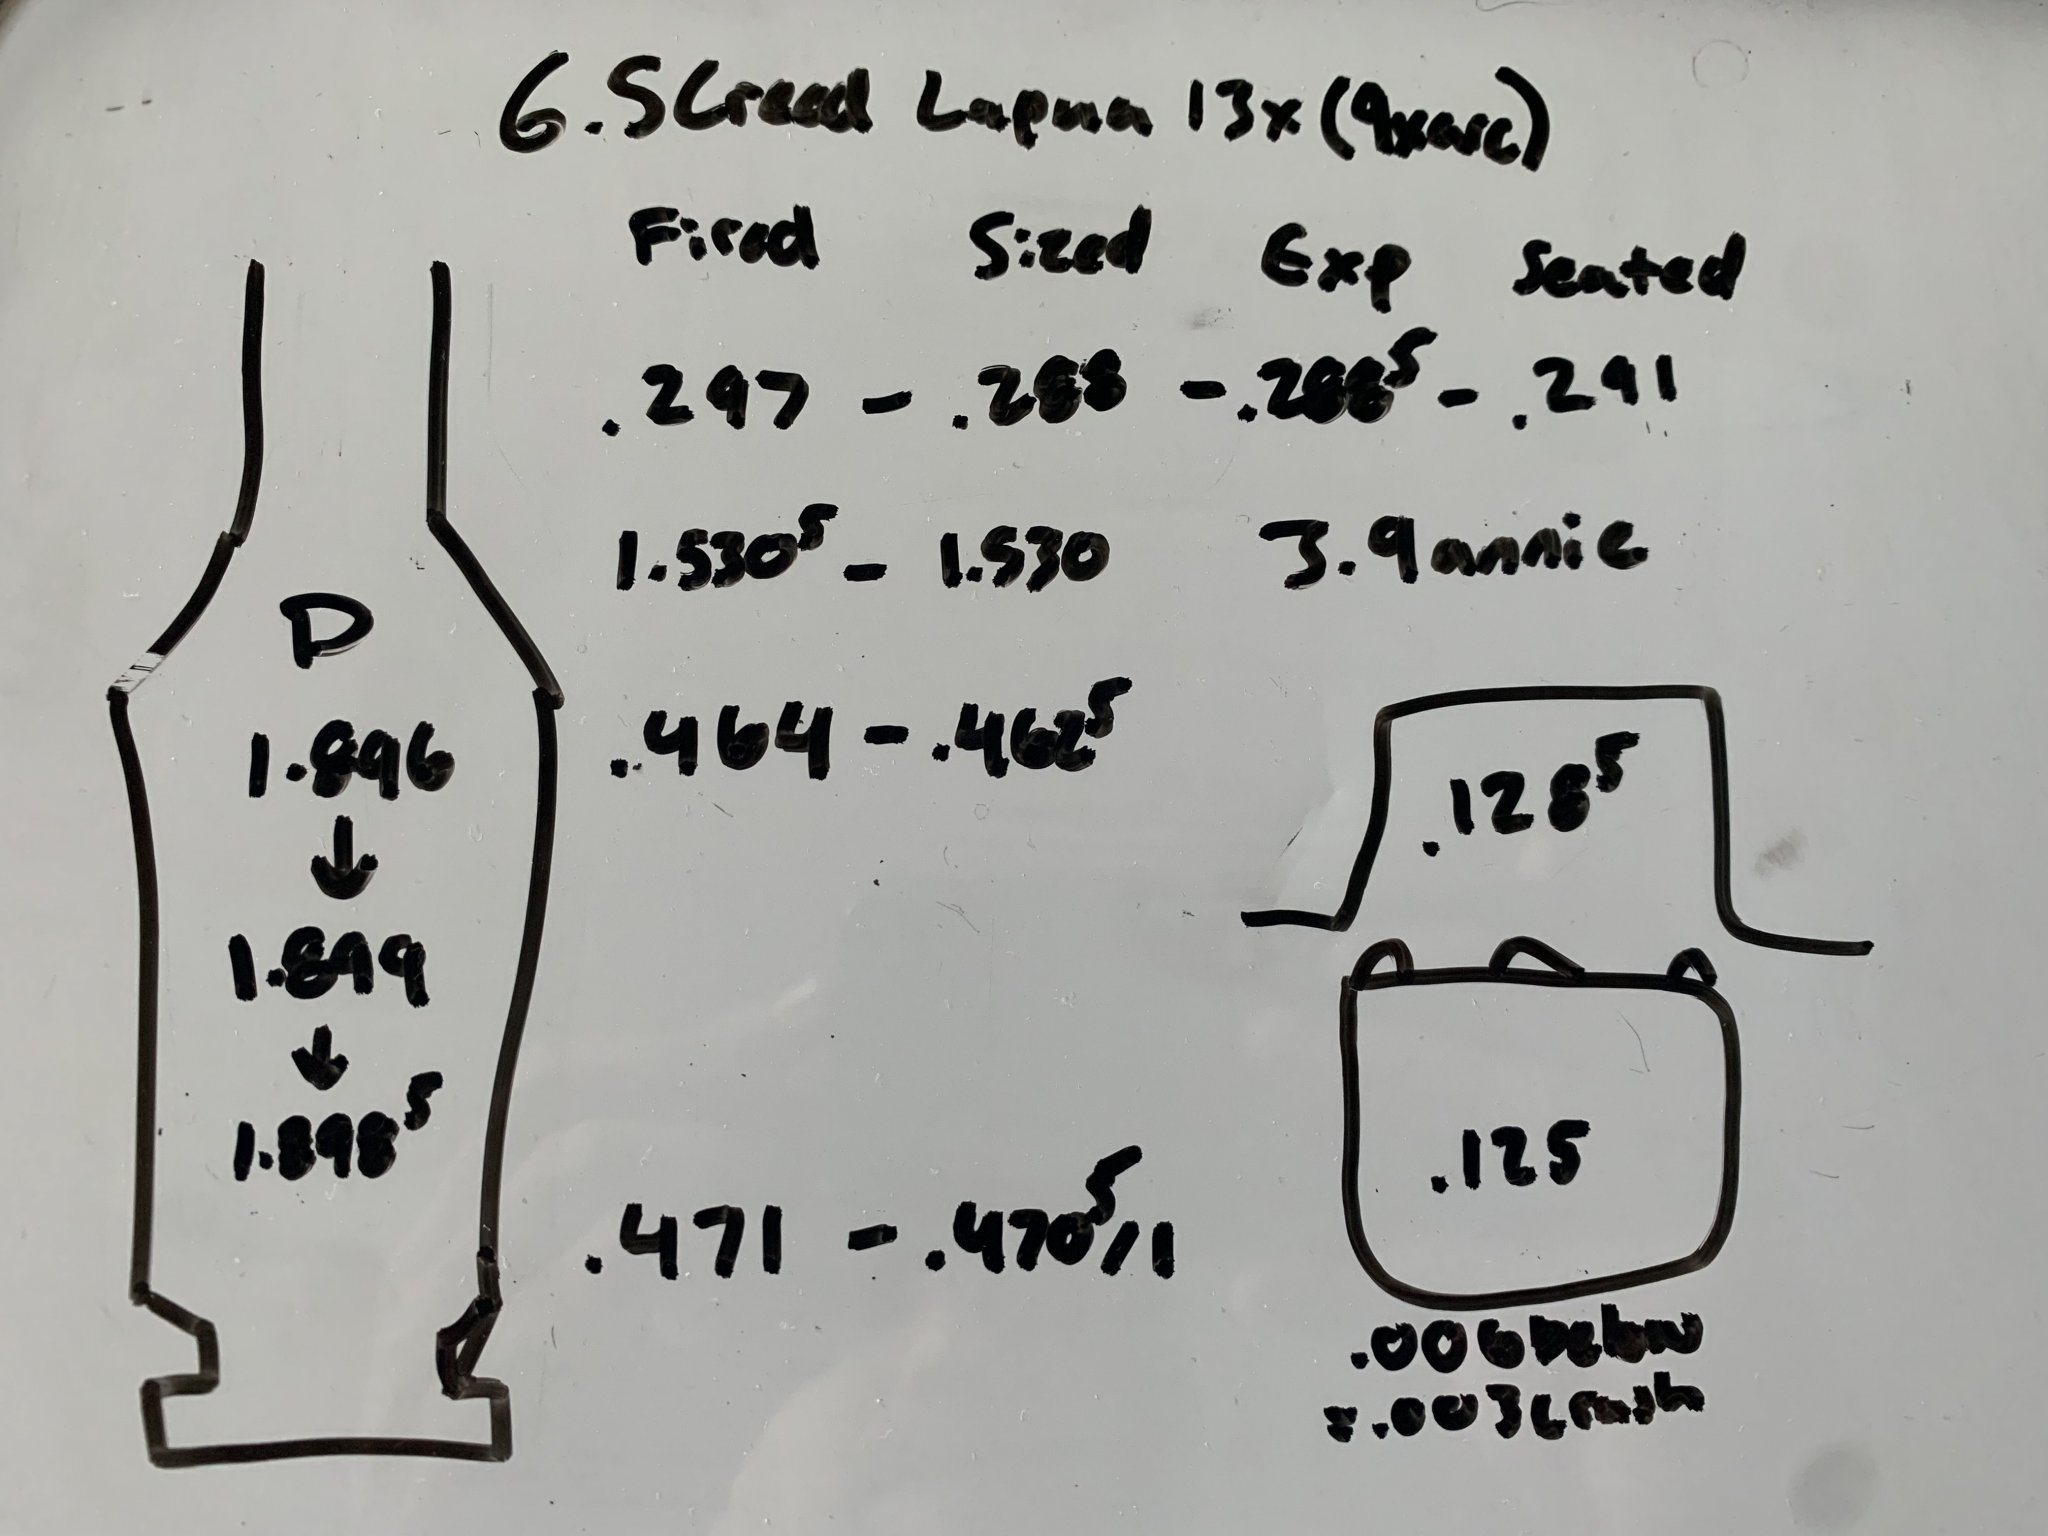 6.5 Creed Lapua 13x (9xarc)
Fired Sized Exp Seated
.297 - .288 - .288⁵ - .291
1.530⁵ - 1.530 3.9 annie
D
.464 - .462⁵
1.896
.128⁵
↓
1.899
↓
1.898⁵
.125
.471 - .470⁵/1
.006 below
= .003 crush